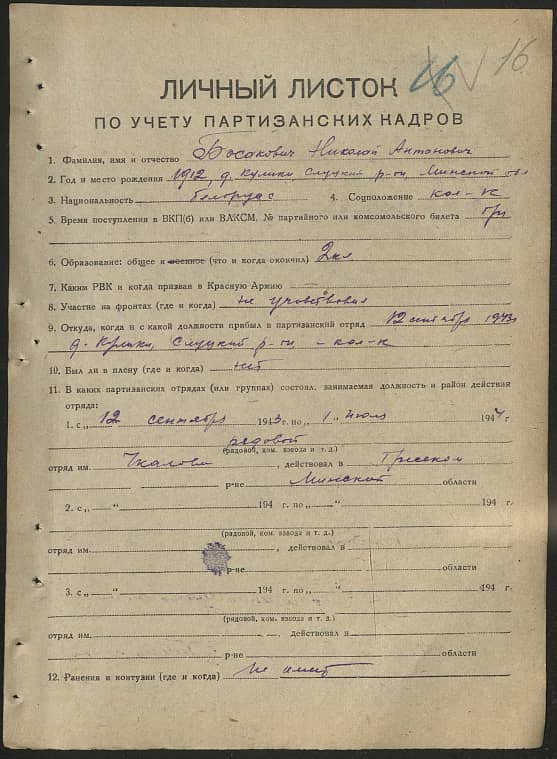 16
ЛИЧНЫЙ ЛИСТОК
ПО УЧЕТУ ПАРТИЗАНСКИХ КАДРОВ
1. Фамилия, имя и отчество Босакович Николай Антонович
2. Год и место рождения 1912 д. Кулики Слуцкий р-он, Минской обл
3. Национальность белорус 4. Соцположение кол-к
5. Время поступления в ВКП(б) или ВЛКСМ, № партийного или комсомольского билета б/п
6. Образование: общее и военное (что и когда окончил) 2 кл.
7. Каким РВК и когда призван в Красную Армию
8. Участие на фронтах (где и когда) не участвовал
9. Откуда, когда и с какой должности прибыл в партизанский отряд 12 сентябр 1943
д. Кулики, Слуцкий р-он - кол-к
10. Был ли в плену (где и когда) нет
11. В каких партизанских отрядах (или группах) состоял, занимаемая должность и район действий
отряда:
1. с „ 12 сентября 1943 г. по „ 1 " июля 1944 г.
рядовой
(рядовой, ком. взвода и т. д.)
отряд им. Чкалова , действовал в Гресском
р-не Минской области
2. с „ " 194 г. по „ " 194 г.
(рядовой, ком. взвода и т. д.)
отряд им. , действовал в
р-не области
3. с „ " 194 г. по „ " 194 г.
(рядовой, ком. взвода и т. д.)
отряд им. , действовал в
р-не области
12. Ранения и контузии (где и когда) не имел